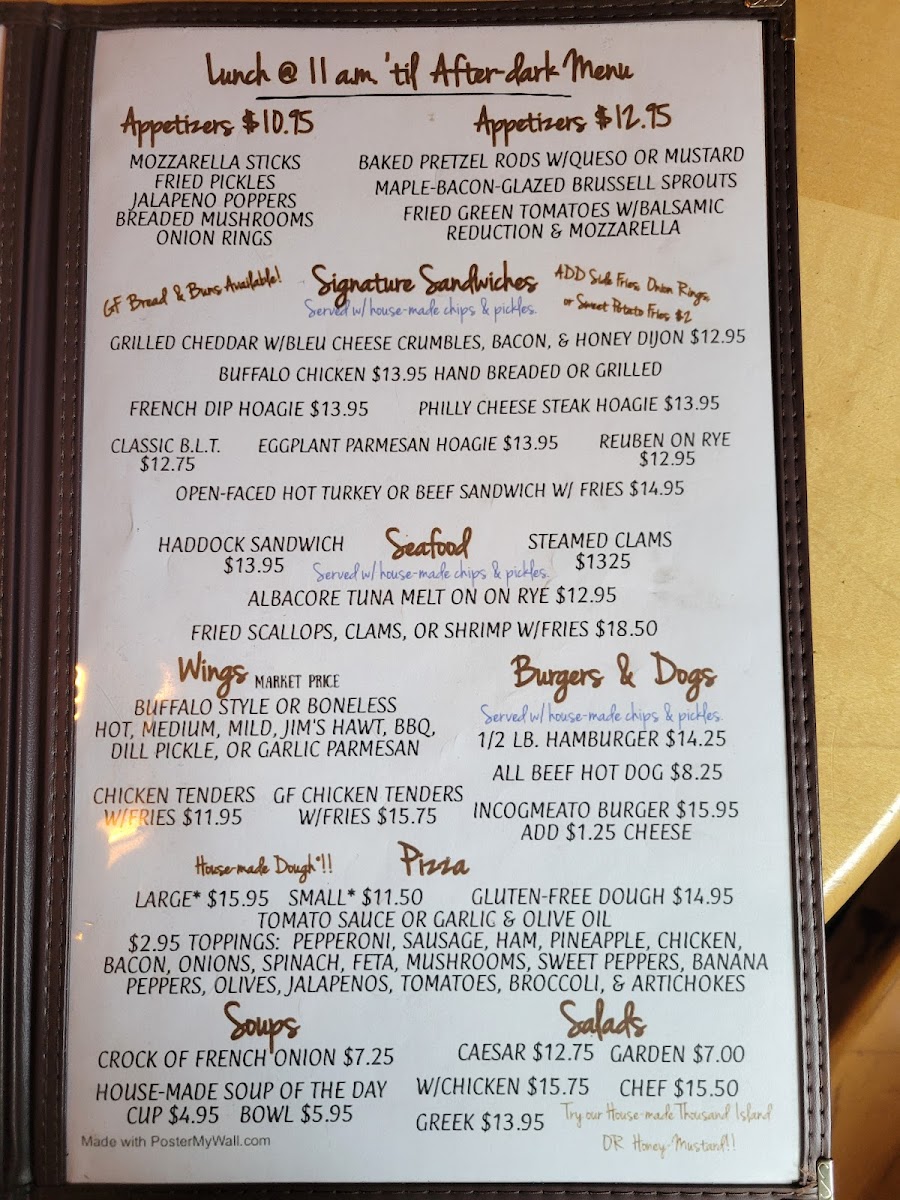 Lunch @ 11 am 'til After-dark Menu
Appetizers $10.95
MOZZARELLA STICKS
FRIED PICKLES
JALAPENO POPPERS
BREADED MUSHROOMS
ONION RINGS
Appetizers $12.95
BAKED PRETZEL RODS W/QUESO OR MUSTARD
MAPLE-BACON-GLAZED BRUSSELL SPROUTS
FRIED GREEN TOMATOES W/BALSAMIC
REDUCTION & MOZZARELLA
GF Bread & Buns Available!
Signature Sandwiches
Served w/ house-made chips & pickles.
ADD Side Fries, Onion Rings,
or Sweet Potato Fries $2
GRILLED CHEDDAR W/BLEU CHEESE CRUMBLES, BACON, & HONEY DIJON $12.95
BUFFALO CHICKEN $13.95 HAND BREADED OR GRILLED
FRENCH DIP HOAGIE $13.95 PHILLY CHEESE STEAK HOAGIE $13.95
CLASSIC B.L.T.
$12.75
EGGPLANT PARMESAN HOAGIE $13.95
REUBEN ON RYE
$12.95
OPEN-FACED HOT TURKEY OR BEEF SANDWICH W/ FRIES $14.95
Seafood
Served w/ house-made chips & pickles.
HADDOCK SANDWICH
$13.95
STEAMED CLAMS
$1325
ALBACORE TUNA MELT ON ON RYE $12.95
FRIED SCALLOPS, CLAMS, OR SHRIMP W/FRIES $18.50
Wings MARKET PRICE
BUFFALO STYLE OR BONELESS
HOT, MEDIUM, MILD, JIM'S HAWT, BBQ,
DILL PICKLE, OR GARLIC PARMESAN
CHICKEN TENDERS
W/FRIES $11.95
GF CHICKEN TENDERS
W/FRIES $15.75
Burgers & Dogs
Served w/ house-made chips & pickles.
1/2 LB. HAMBURGER $14.25
ALL BEEF HOT DOG $8.25
INCOGMEATO BURGER $15.95
ADD $1.25 CHEESE
House-made Dough*!! Pizza
LARGE* $15.95 SMALL* $11.50 GLUTEN-FREE DOUGH $14.95
TOMATO SAUCE OR GARLIC & OLIVE OIL
$2.95 TOPPINGS: PEPPERONI, SAUSAGE, HAM, PINEAPPLE, CHICKEN,
BACON, ONIONS, SPINACH, FETA, MUSHROOMS, SWEET PEPPERS, BANANA
PEPPERS, OLIVES, JALAPENOS, TOMATOES, BROCCOLI, & ARTICHOKES
Soups
CROCK OF FRENCH ONION $7.25
HOUSE-MADE SOUP OF THE DAY
CUP $4.95 BOWL $5.95
Salads
CAESAR $12.75 GARDEN $7.00
W/CHICKEN $15.75 CHEF $15.50
GREEK $13.95
Try our House-made Thousand Island
OR Honey-Mustard!!
Made with PosterMyWall.com